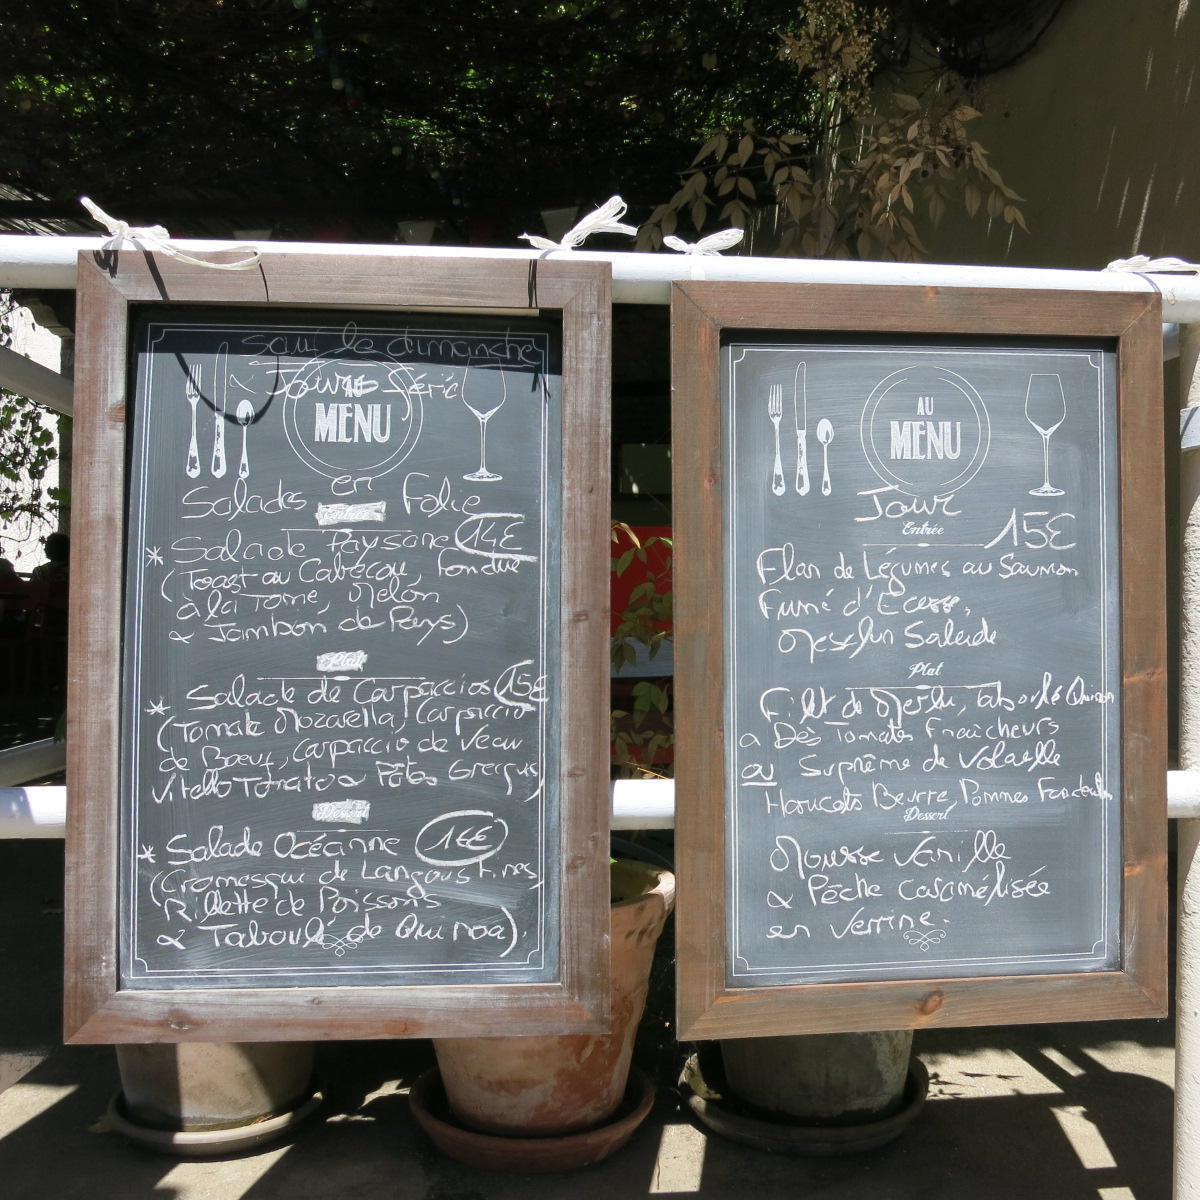 sauf le dimanche
& Jours Férié
AU
MENU
Salades en Folie
* Salade Paysane 14€
(Toast au Cabécou, Fondue
à la Tome, Melon
& Jambon de Pays)
Plat
* Salade de Carpaccios 15€
(Tomate Mozarella, Carpaccio
de Bœuf, carpaccio de Veau
Vitello Tonato & Pâtes Grecques)
Dessert
* Salade Océanne 16€
(Cromesqui de Langoustines,
Rillette de Poissons
& Taboulé de Quinoa).
AU
MENU
Jour
Entrée
15€
Flan de Légumes au Saumon
Fumé d'Ecosse,
Mesclun Salade
Plat
Filet de Merlu, taboulé Quinoa
& Dés Tomates Fraîcheurs
ou Suprême de Volaille
Haricots Beurre, Pommes Fondantes
Dessert
Mousse Vanille
& Pêche caramélisée
en verrine.